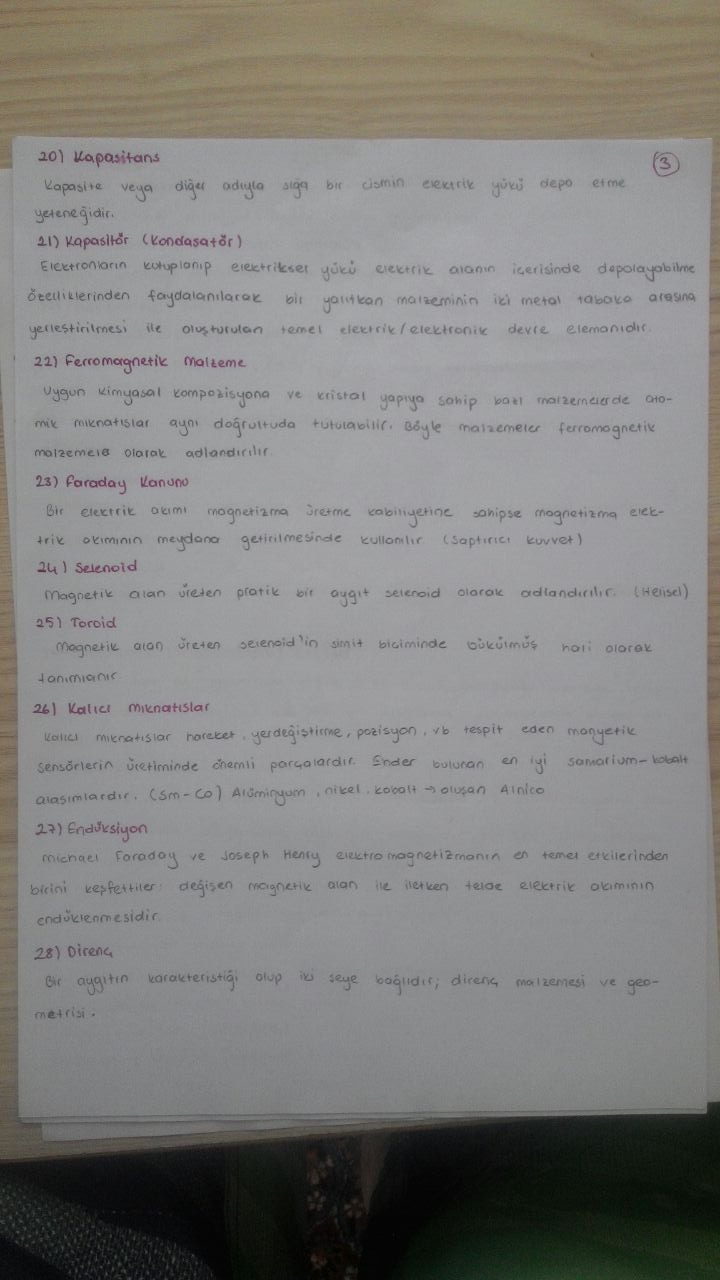 20) Kapasitans
3
Kapasite veya diğer adıyla sığa bir cismin elektrik yükü depo etme
yeteneğidir.
21) Kapasitör (Kondasatör)
Elektronların kutuplanıp elektriksel yükü elektrik alanın içerisinde depolayabilme
özelliklerinden faydalanılarak bir yalıtkan malzeminin iki metal tabaka arasına
yerleştirilmesi ile oluşturulan temel elektrik/elektronik devre elemanıdır.
22) Ferromagnetik Malzeme
Uygun kimyasal kompozisyona ve kristal yapıya sahip bazı malzemelerde ato-
mik mıknatıslar aynı doğrultuda tutulabilir. Böyle malzemeler ferromagnetik
olarak adlandırılır.
23) Faraday Kanunu
Bir elektrik akımı magnetizma üretme kabiliyetine sahipse magnetizma elek-
trik akımının meydana getirilmesinde kullanılır. (Saptırıcı kuvvet)
24) Selenoid
Magnetik alan üreten pratik bir aygıt selenoid olarak adlandırılır. (Helisel)
25) Toroid
Magnetik alan üreten selenoid'in simit biçiminde bükülmüş hali olarak
tanımlanır
26) Kalıcı mıknatıslar
Kalıcı mıknatıslar hareket, yerdeğiştirme, pozisyon, vb tespit eden manyetik
sensörlerin üretiminde önemli parçalardır. Ender bulunan en iyi samarium-kobalt
alaşımlardır. (Sm-Co) Alüminyum, nikel, kobalt → oluşan Alnico
27) Endüksiyon
Michael Faraday ve Joseph Henry elektromagnetizmanın en temel etkilerinden
birini keşfettiler: değişen magnetik alan ile iletken telde elektrik akımının
endüklenmesidir.
28) Direnç
Bir aygıtın karakteristiği olup iki şeye bağlıdır; direnç malzemesi ve geo-
metrisi.